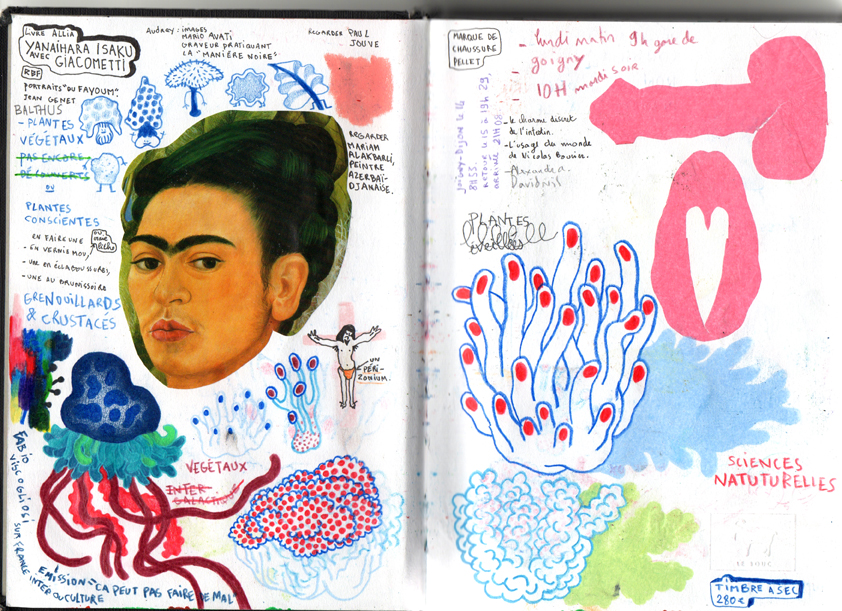 LIVRE ALLIA
YANAÏHARA ISAKU
AVEC GIACOMETTI
RBF
PORTRAITS "DU FAYOUM"
JEAN GENET
BALTHUS
- PLANTES
VÉGÉTAUX
PAS ENCORE
DÉCOUVERTS
OU
PLANTES
CONSCIENTES
EN FAIRE UNE
- EN VERNIS MOU,
OU UNE
- UNE EN ÉCLABOUSSURES,
- UNE AU BRUNISSOIRE
GRENOUILLARDS
& CRUSTACÉS
AUDREY: IMAGES
MARIO AVATI
GRAVEUR PRATIQUANT
LA "MANIÈRE NOIRES"
REGARDER PAUL
JOUVE
REGARDER
MARIAM
ALAKBARLI,
PEINTRE
AZERBAÏ-
DJANAISE.
UN
PÉRI-
ZONIUM.
VÉGÉTAUX
INTER-
GALACTIQUE
FABIO
VISCOGLIOSI
SUR FRANCE
INTER OU CULTURE
EMISSION "CA PEUT PAS FAIRE DE MAL"
MARQUE DE
CHAUSSURE
PELLET
- lundi matin 9h gare de
joigny
- 10H mardi soir
Joigny-Dijon le 14
8H55.
RETOUR le 15 à 19h 29,
arrivée 21H08
- le charme discret
de l'intestin.
- L'usage du monde
de Nicolas Bouvier.
- Alexandra
David
PLANTES
éveillées
SCIENCES
NATUTURELLES
TIMBRE A SEC
280€